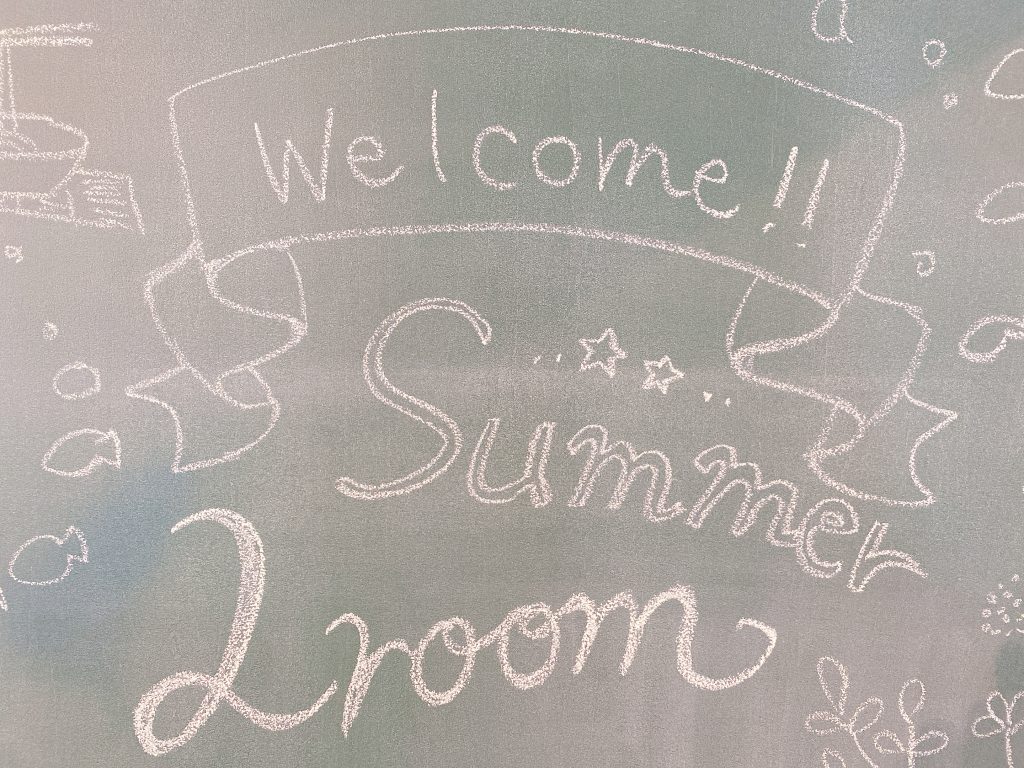 Welcome!!
Summer
2room